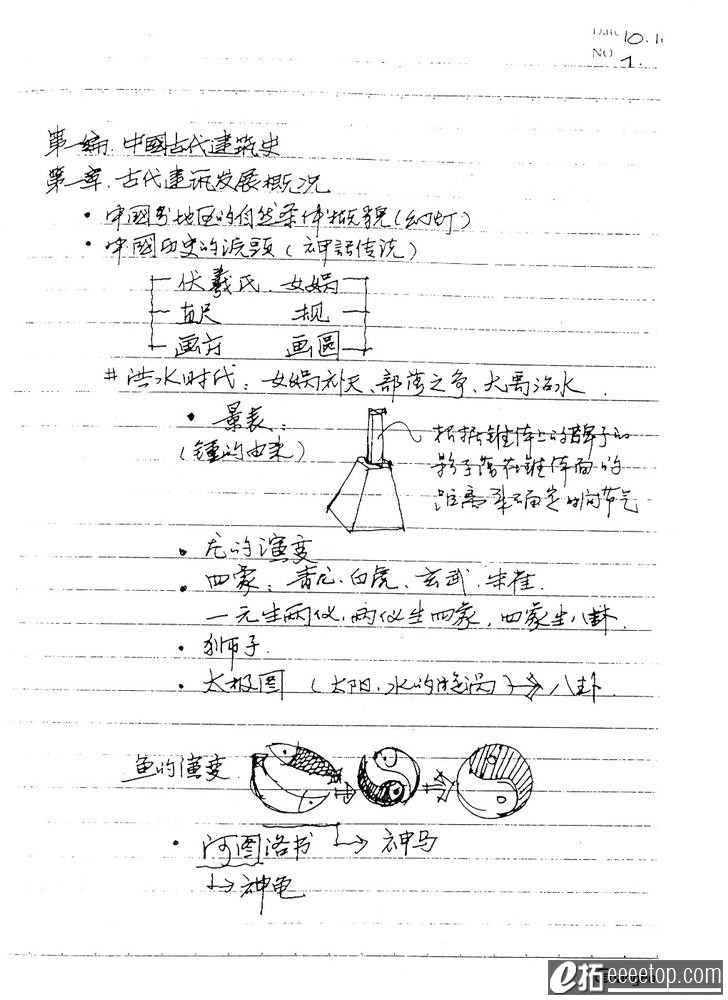 DATE 10.1
NO 1.
第一编.中國古代建筑史
第一章.古代建筑发展概况
·中國各地区的自然条件概貌(幻灯)
·中國历史的源頭(神話传说)
伏羲氏.女娲
直尺 规
画方 画圆
#洪水时代:女娲补天、部落之争、大禹治水.
·景表:
(鍾的由来)
根据锥体上的棍子的
影子落在锥体面的
距离来确定时间节气
·龙的演变
·四象:青龙.白虎.玄武.朱雀.
一元生两仪.两仪生四象.四象生八卦.
·狮子.
·太极图(太阳.水的漩涡)→八卦.
鱼的演变
·河图洛书→神马
→神龟
e拓eeeetop.com